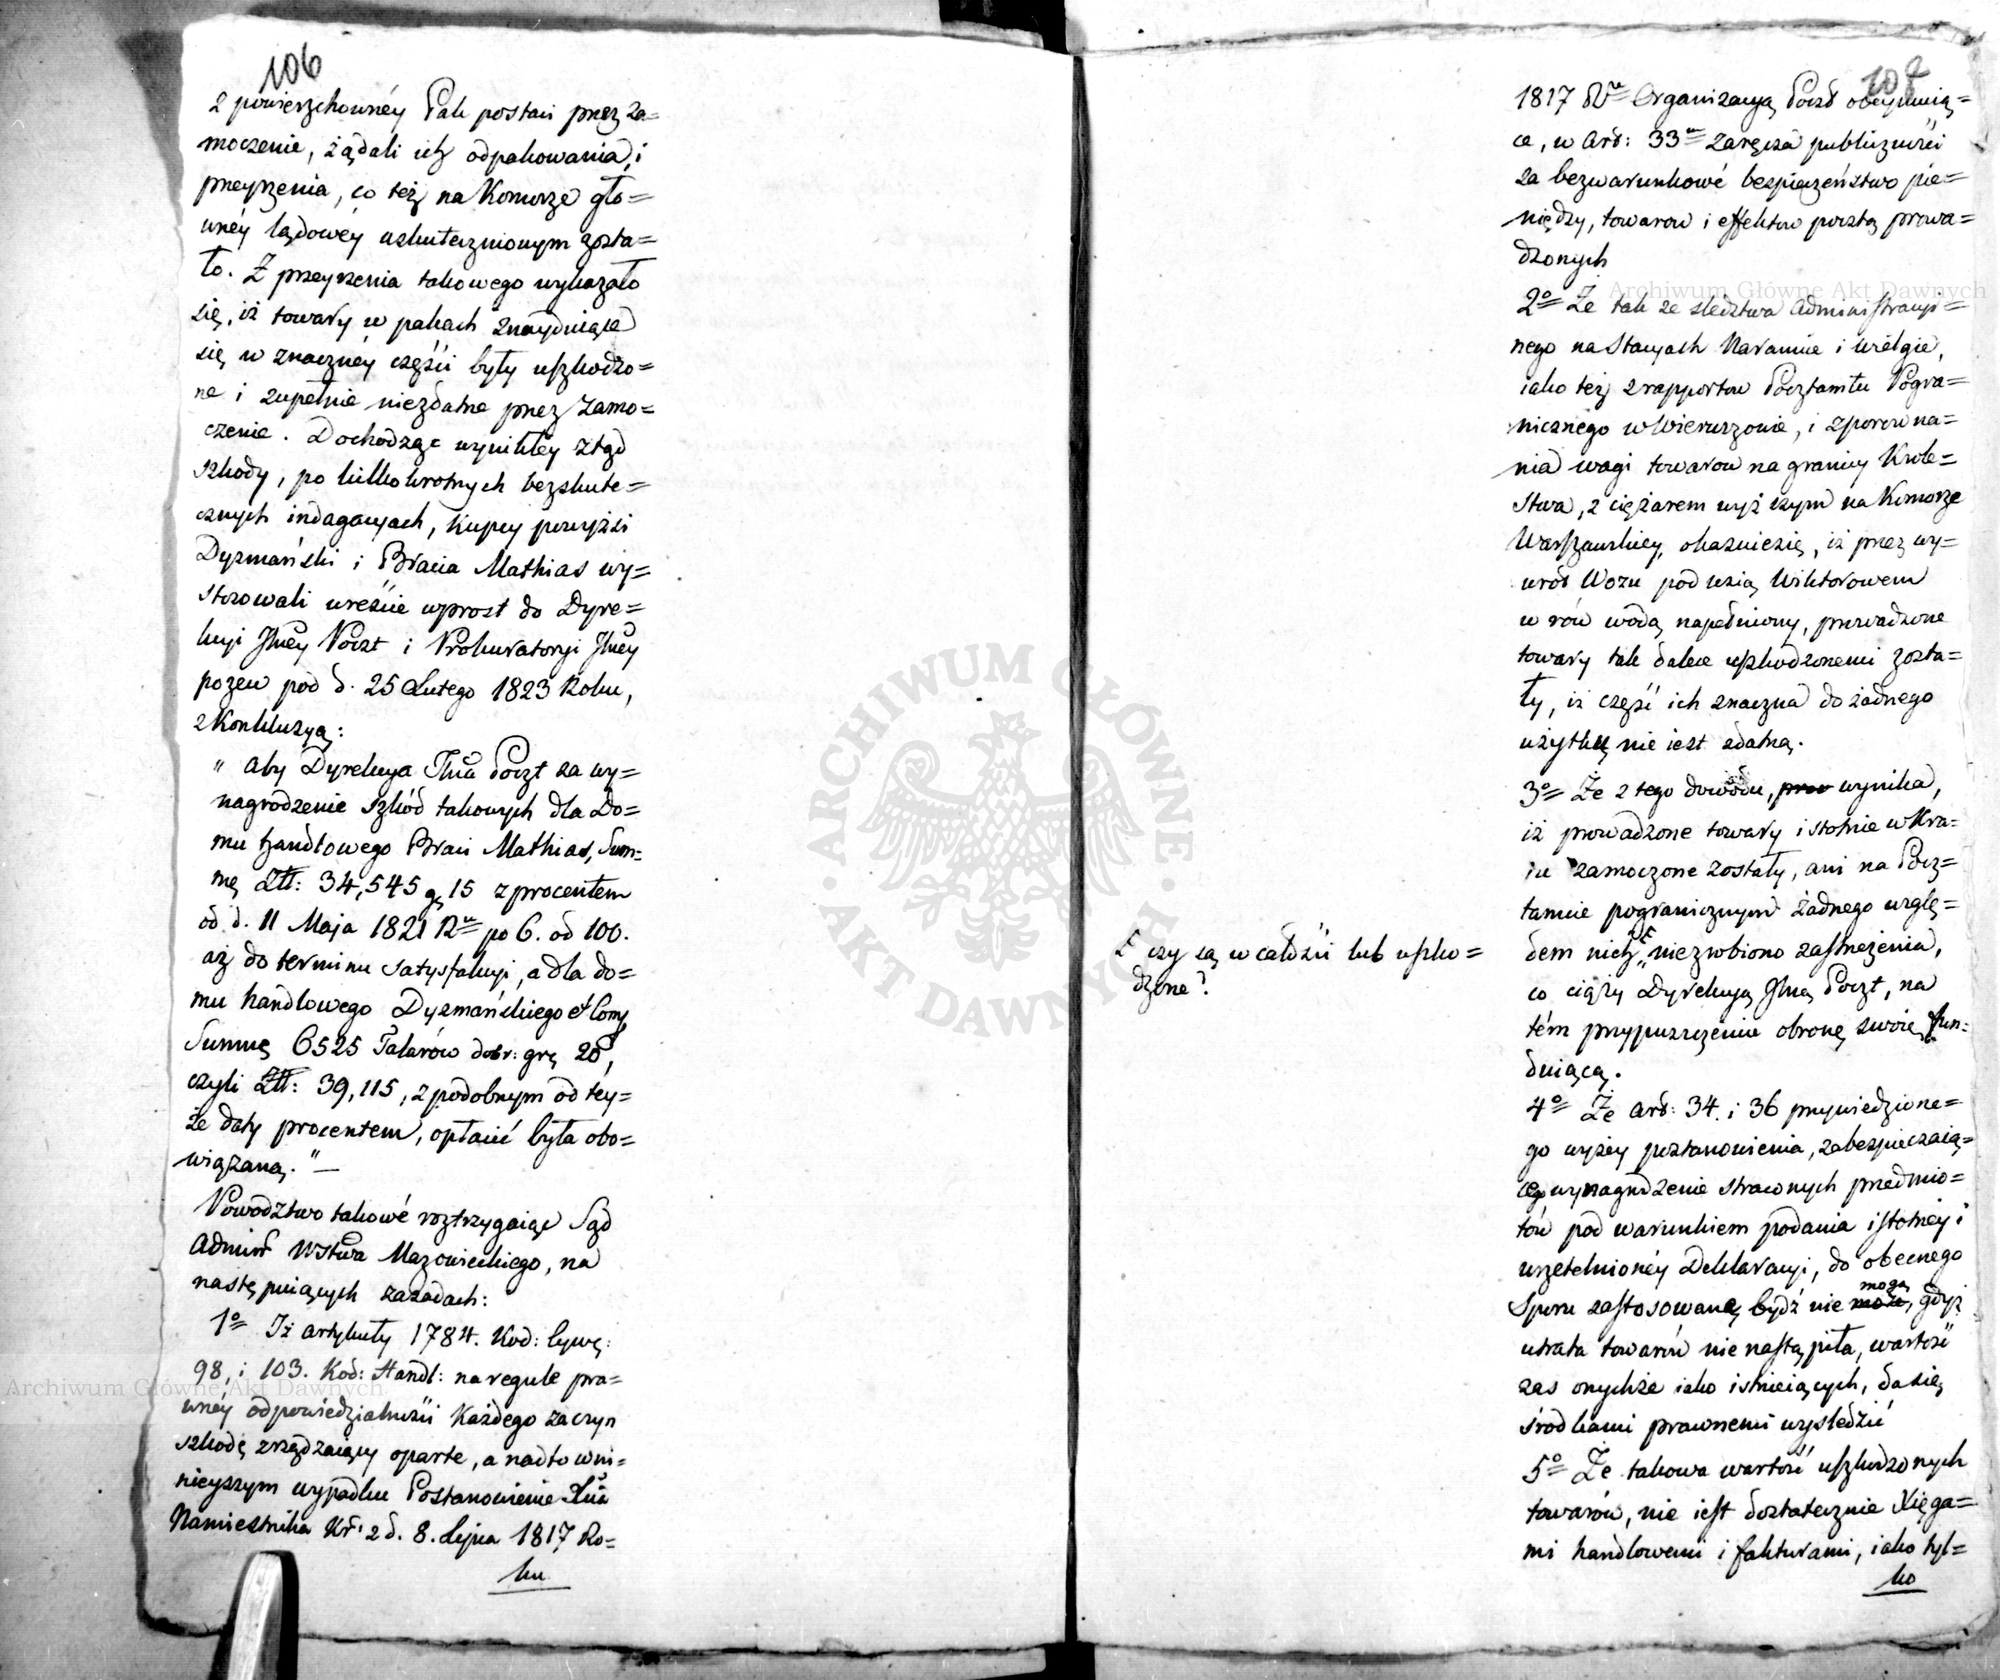 106
z powierzchownéy Pak postaci przez za=
moczenie, żądali ich odpakowania, i
przeyrzenia, co też na Komorze głó=
wnéy lądowéy uskutecznionym zosta=
ło. Z przeyrzenia takowego wykazało
się, iż towary w pakach znayduiące
się w znacznéy części były uszkodzo=
ne i zupełnie niezdatne przez zamo=
czenie. Dochodząc wynikłey ztąd
szkody, po kilkokrotnych bezskute=
cznych indagacyach, kupcy powyżsi
Dyzmański i Bracia Mathias wy=
stosowali wreście wprost do Dyre=
kcyi Jłnéy Poczt i Prokuratoryi Jłnéy
pozew pod d. 25 Lutego 1823 Roku,
z Konkluzyą:
" aby Dyrekcya Jłna Poczt za wy=
nagrodzenie szkód takowych dla Do=
mu handlowego Braci Mathias, Sum=
mę Złł: 34,545 gr 15 z procentem
od d. 11 Maja 1821 Ru po 6. od 100.
aż do terminu satysfakcyi, a dla do=
mu handlowego Dyzmańskiego et Comp
Summę 6525 Talarów dobr: gr 20,
czyli Złł: 39,115, z podobnym od tey=
że daty procentem, opłacić była obo=
wiązaną." —
Powództwo takowé roztrzygaiąc Sąd
Admin Wstwa Mazowieckiego, na
następuiących zasadach:
1o Iż artykuły 1784. Kod: Cywe:
98, i 103. Kod: Handl: na regule pra=
wnéy odpowiedzialności każdego za czyn
szkodę zrządzaiący oparte, a nadto w ni=
nieyszym wypadku Postanowienie Xcia
Namiestnika Kr: z d. 8. Lipca 1817 Ro=
ku
107
1817 Ru Organizacyą Poczt obeymuią=
ce, w Art: 33m zaręcza publiczności
za bezwarunkowé bezpieczeństwo pie=
niędzy, towarow i effektow pocztą prowa=
dzonych
2o Że tak ze sledztwa Administracyi=
nego na Stacyach Naramie i Wielgie,
iako też z rapportow Pocztamtu Pogra=
nicznego w Wieruszowie, i z porowna=
nia wagi towarow na granicy Krole=
stwa, z ciężarem wyższym na Komorze
Warszawskiey, okazuiesię, iż przez wy=
wrót Wozu pod wsią Wiktorowem
w rów wodą napełniony, prowadzone
towary tak dalece uszkodzonemi zosta=
ły, iż część ich znaczna do żadnego
użytku nie iest zdatną.
3o Że z tego dowodu, wynika,
iż prowadzone towary istotnie w Kra=
iu zamoczone zostały, ani na Pocz=
tamcie pogranicznym żadnego wzglę=
dem nich niezrobiono zastrzeżenia,
F czy są w całości lub uszko=
dzone?
co ciąży Dyrekcyą Jłną Poczt, na
tém przypuszczenie obronę swoię fun=
duiącą.
4o Że art: 34. i 36 przywiedzione=
go wyżey postanowienia, zabezpieczaią=
cego wynagrodzenie straconych przedmio=
tów pod warunkiem podania istotnéy i
urzetelnionéy Deklaracyi, do obecnego
Sporu zastosowane bydź nie może mogą, gdyż
utrata towarów nie nastąpiła, wartość
zaś onychże iako istnieiących, da się
środkami prawnemi wyśledzić
5o Że takowa wartość uszkodzonych
towarów, nie iest dostatecznie Xięga=
mi handlowemi i fakturami, iako tyl=
ko
Archiwum Główne Akt Dawnych
Archiwum Główne Akt Dawnych
ARCHIWUM GŁÓWNE AKT DAWNYCH